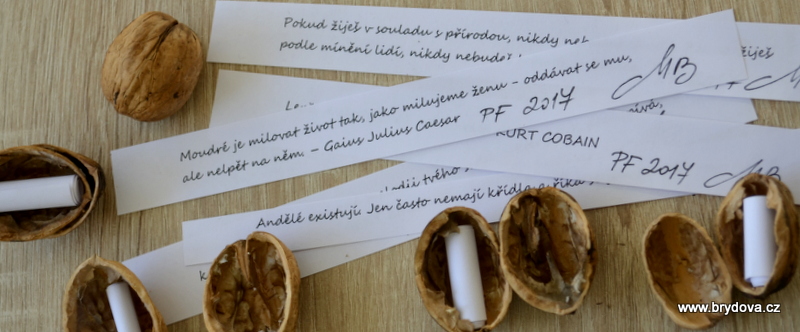 Pokud žiješ v souladu s přírodou, nikdy
podle mínění lidí, nikdy nebudeš
žiješ
Moudré je milovat život tak, jako milujeme ženu – oddávat se mu,
ale nelpět na něm. – Gaius Julius Caesar
PF 2017 MB
KURT COBAIN
PF 2017
tvého
Andělé existují. Jen často nemají křídla a říká
www.brydova.cz